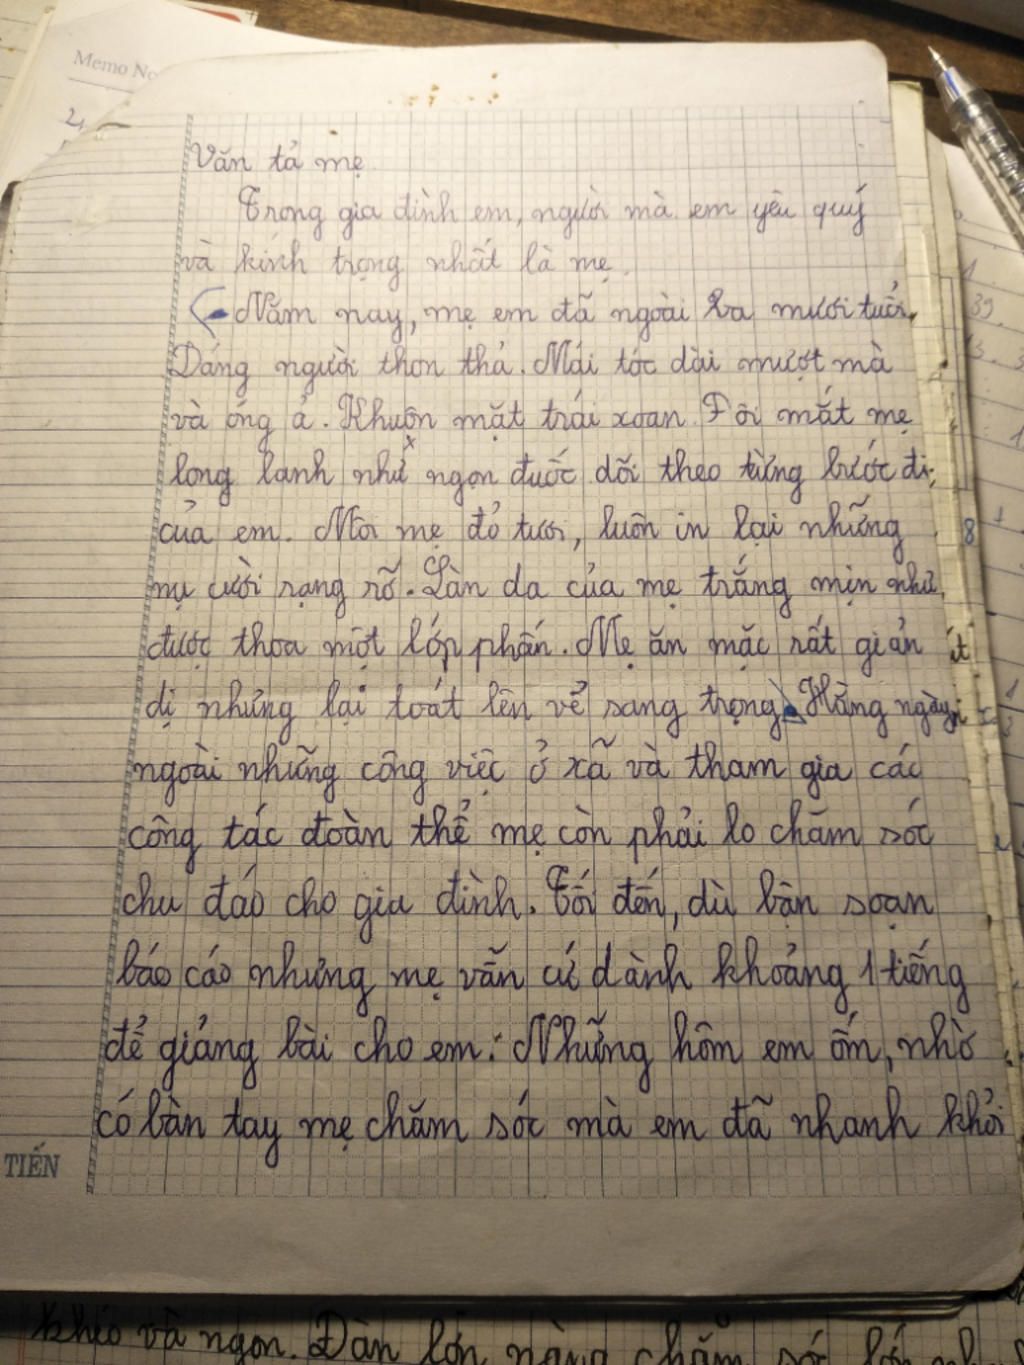 Memo No
2,
Văn tả mẹ
Trong gia đình em, người mà em yêu quý
và kính trọng nhất là mẹ.
Năm nay, mẹ em đã ngoài ba mươi tuổi.
Dáng người thon thả. Mái tóc dài mượt mà
và óng ả. Khuôn mặt trái xoan. Đôi mắt mẹ
long lanh như ngọn đuốc dõi theo từng bước đi
của em. Môi mẹ đỏ tươi, luôn in lại những
nụ cười rạng rỡ. Làn da của mẹ trắng mịn như
được thoa một lớp phấn. Mẹ ăn mặc rất giản
dị nhưng lại toát lên vẻ sang trọng. Hằng ngày,
ngoài những công việc ở xã và tham gia các
công tác đoàn thể mẹ còn phải lo chăm sóc
chu đáo cho gia đình. Tối đến, dù bận soạn
báo cáo nhưng mẹ vẫn cứ dành khoảng 1 tiếng
để giảng bài cho em. Những hôm em ốm, nhờ
có bàn tay mẹ chăm sóc mà em đã nhanh khỏi
TIẾN
khéo và ngon. Đàn lợn nặng chăm sóc
39
8